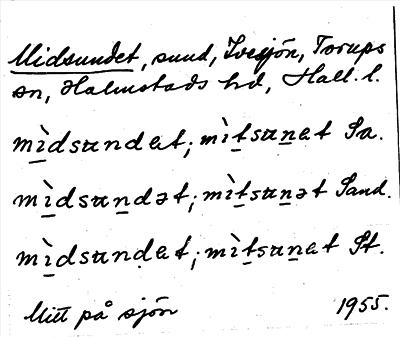 Midsundet, sund, Svesjön, Torups
sn, Halmstads hd, Hall. l.
mìdsundet; mìtsunet Sa.
mìdsundət; mìtsunət Sand.
mìdsundet; mìtsunet St.
Mitt på sjön 1955.